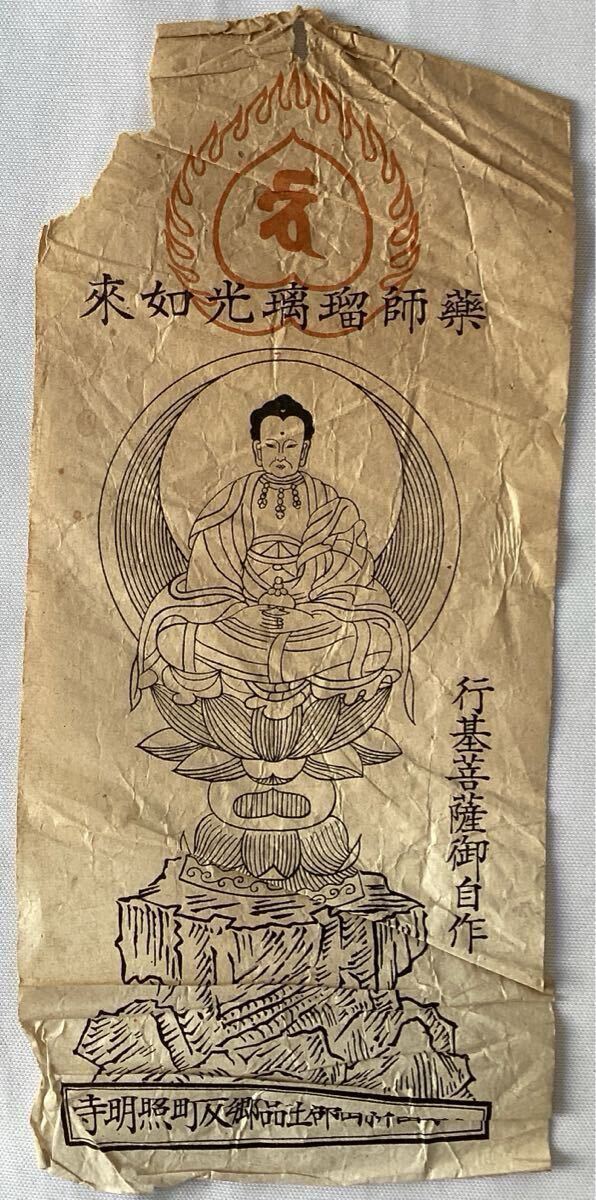 藥師瑠璃光如來
行基菩薩御自作
郡土品郷反町照明寺